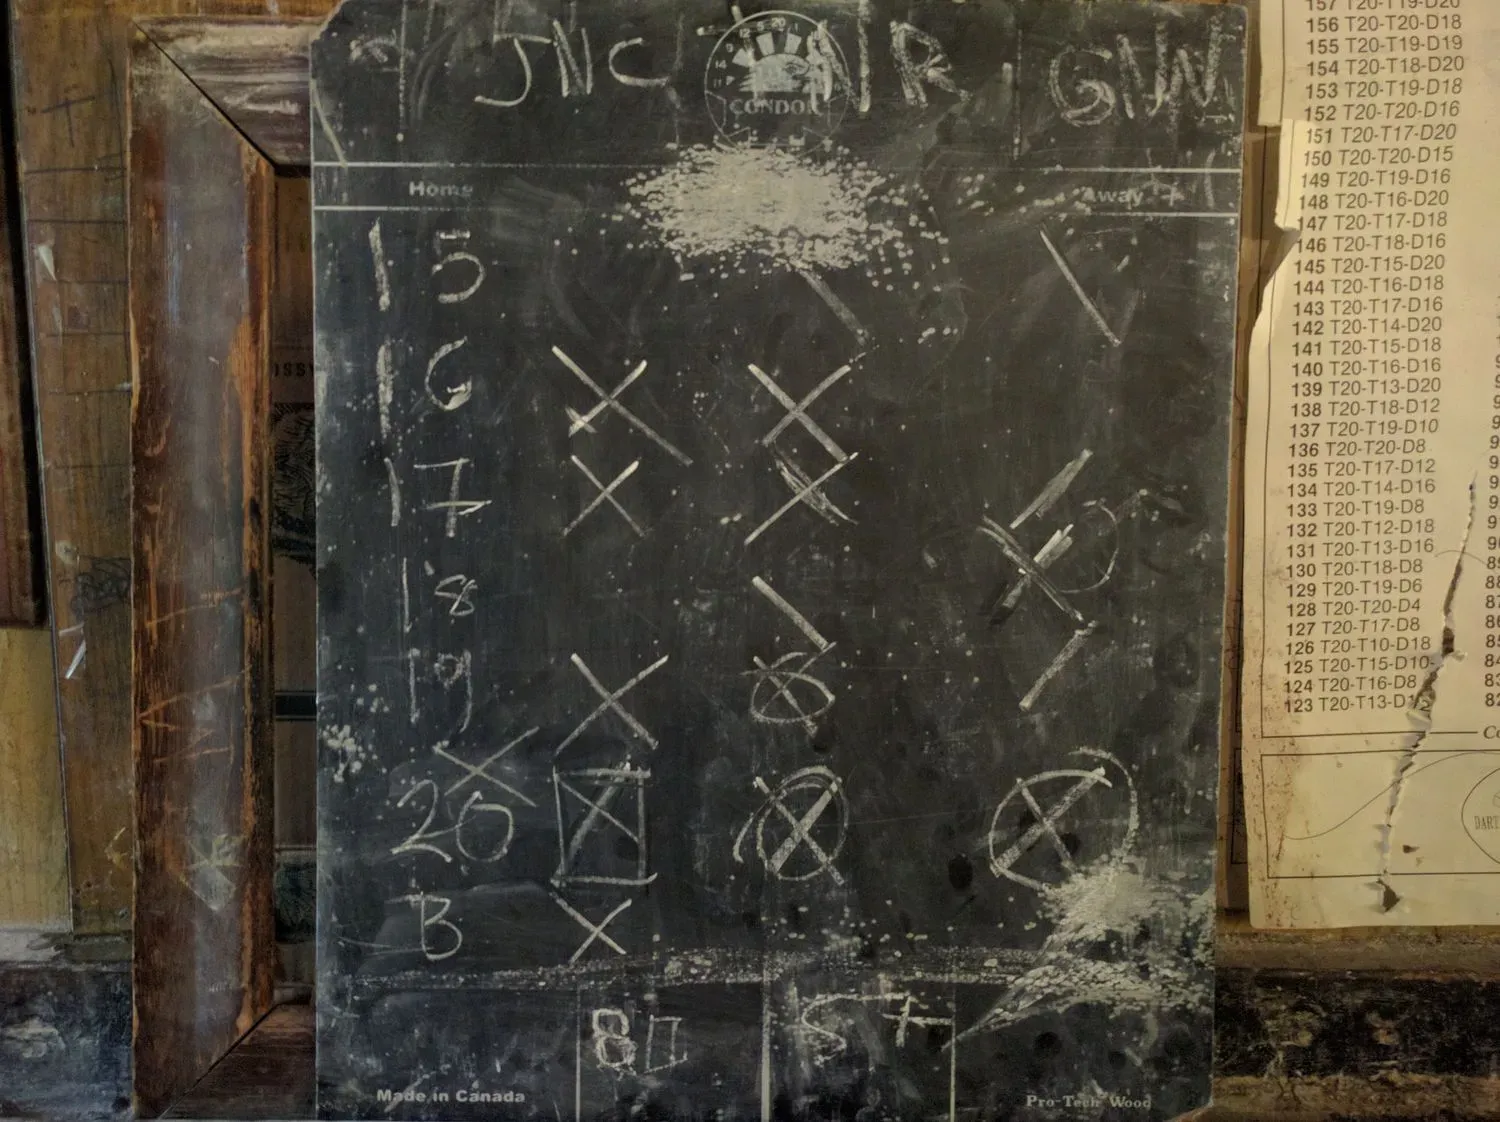 JNC NR GNW
CONDOR
Home Away
15
16
17
18
19
20
B
80 57
Made in Canada
Pro-Tech Wood
157 T20-T19-D20
156 T20-T20-D18
155 T20-T19-D19
154 T20-T18-D20
153 T20-T19-D18
152 T20-T20-D16
151 T20-T17-D20
150 T20-T20-D15
149 T20-T19-D16
148 T20-T16-D20
147 T20-T17-D18
146 T20-T18-D16
145 T20-T15-D20
144 T20-T16-D18
143 T20-T17-D16
142 T20-T14-D20
141 T20-T15-D18
140 T20-T16-D16
139 T20-T13-D20
138 T20-T18-D12
137 T20-T19-D10
136 T20-T20-D8
135 T20-T17-D12
134 T20-T14-D16
133 T20-T19-D8
132 T20-T12-D18
131 T20-T13-D16
130 T20-T18-D8
129 T20-T19-D6
128 T20-T20-D4
127 T20-T17-D8
126 T20-T10-D18
125 T20-T15-D10
124 T20-T16-D8
123 T20-T13-D
DART